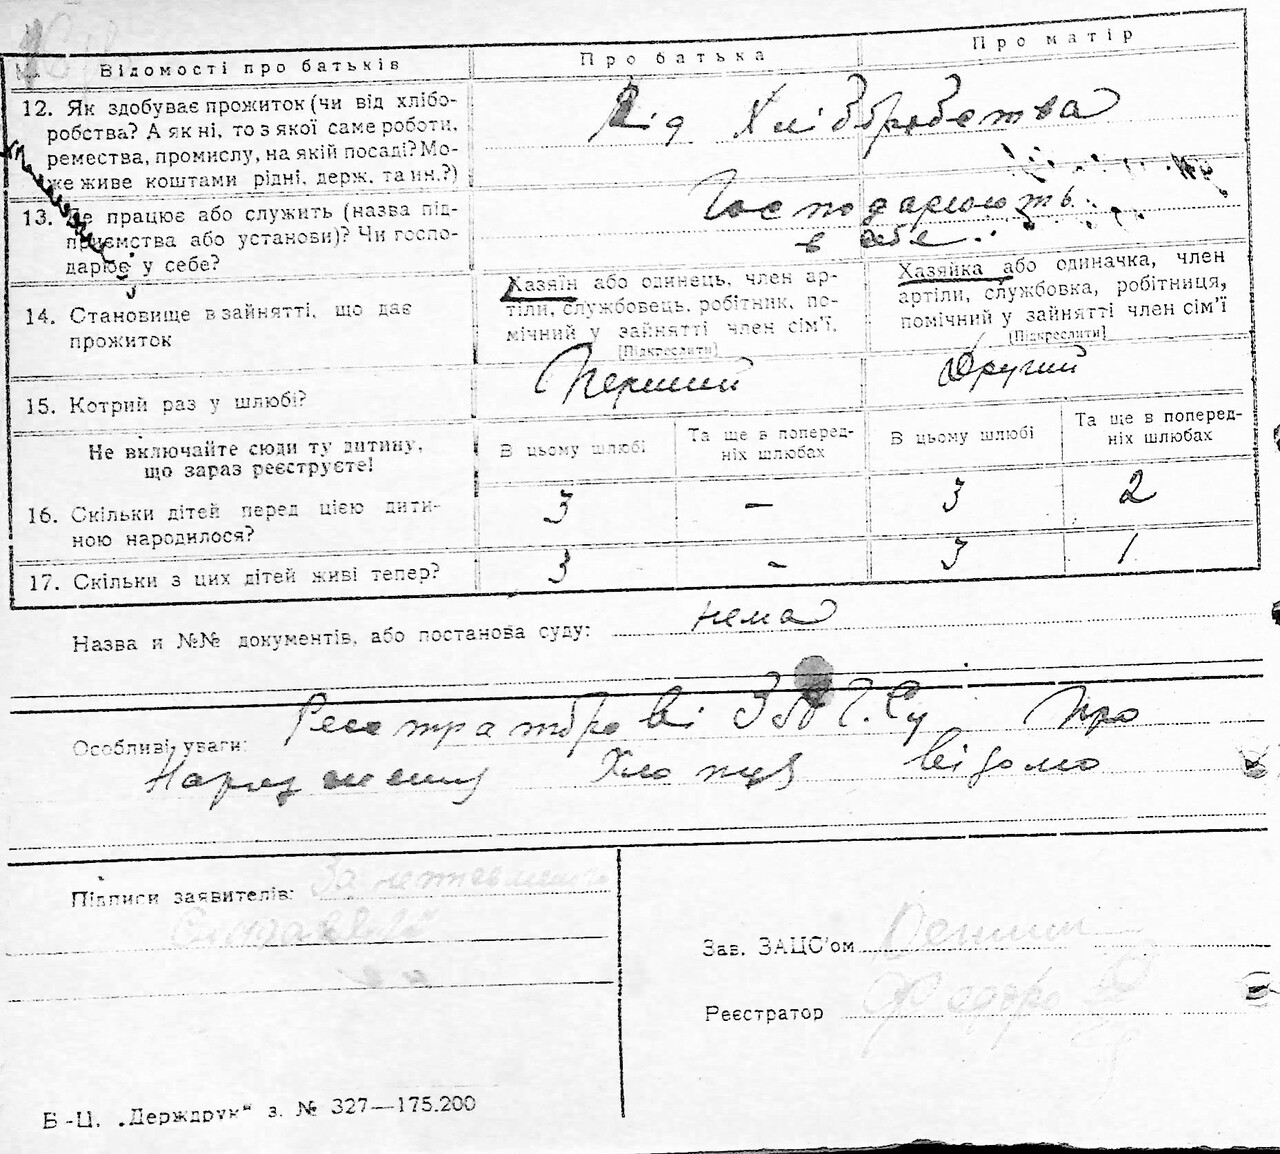 Відомості про батьків Про батька Про матір
12. Як здобуває прожиток (чи від хлібо- Від Хліборобства
робства? А як ні, то з якої саме роботи,
ремества, промислу, на якій посаді? Мо-
же живе коштами рідні, держ. та ин.?)
13. Де працює або служить (назва під- Господарюють
приємства або установи)? Чи госпо- в себе
дарює у себе?
14. Становище в зайнятті, що дає
прожиток
Хазяїн або одинець, член ар-
тіли, службовець, робітник, по-
мічний у зайнятті член сім'ї.
[Підкреслити]
Хазяйка або одиначка, член
артіли, службовка, робітниця,
помічний у зайнятті член сім'ї
[Підкреслити]
15. Котрий раз у шлюбі? Перший Другий
Не включайте сюди ту дитину,
що зараз реєструєте!
В цьому шлюбі
Та ще в поперед-
ніх шлюбах
В цьому шлюбі
Та ще в поперед-
ніх шлюбах
16. Скільки дітей перед цією дити- 3 – 3 2
ною народилося?
17. Скільки з цих дітей живі тепер? 3 - 3 1
Назва й №№ документів, або постанова суду: нема
Особливі уваги: про
хлопця відомо
Підписи заявителів:
Зав. ЗАЦС'ом
Реєстратор
Б-Ц. „Держдрук" з. № 327—175.200